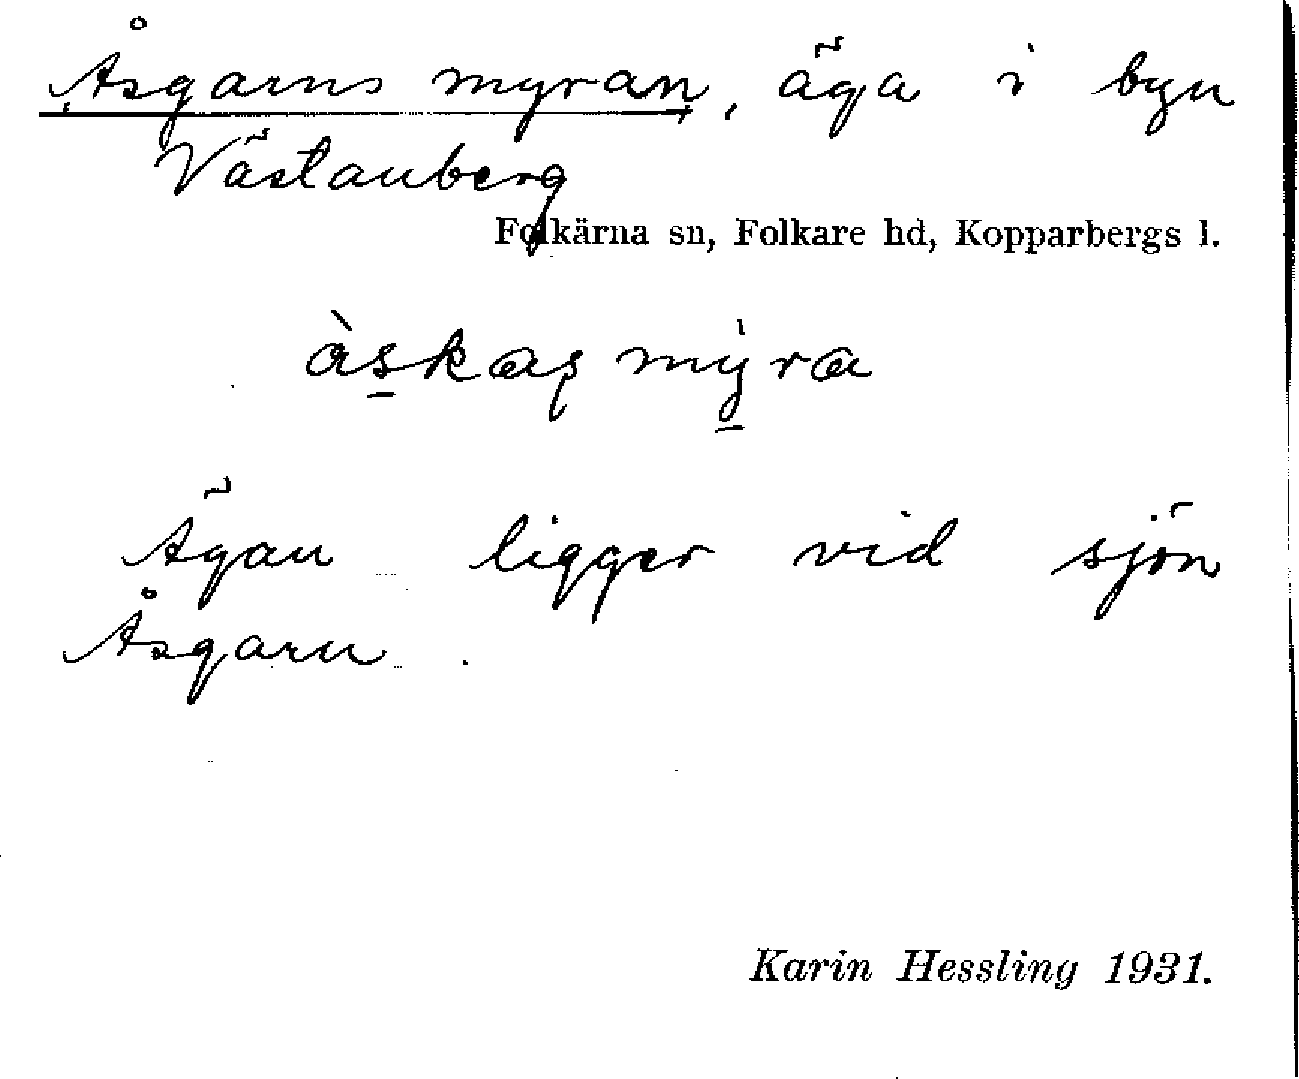 Åsgarns myran, äga i byn
Västanberg
Folkärna sn, Folkare hd, Kopparbergs l.
Ägan ligger vid sjön
Åsgarn.
Karin Hessling 1931.